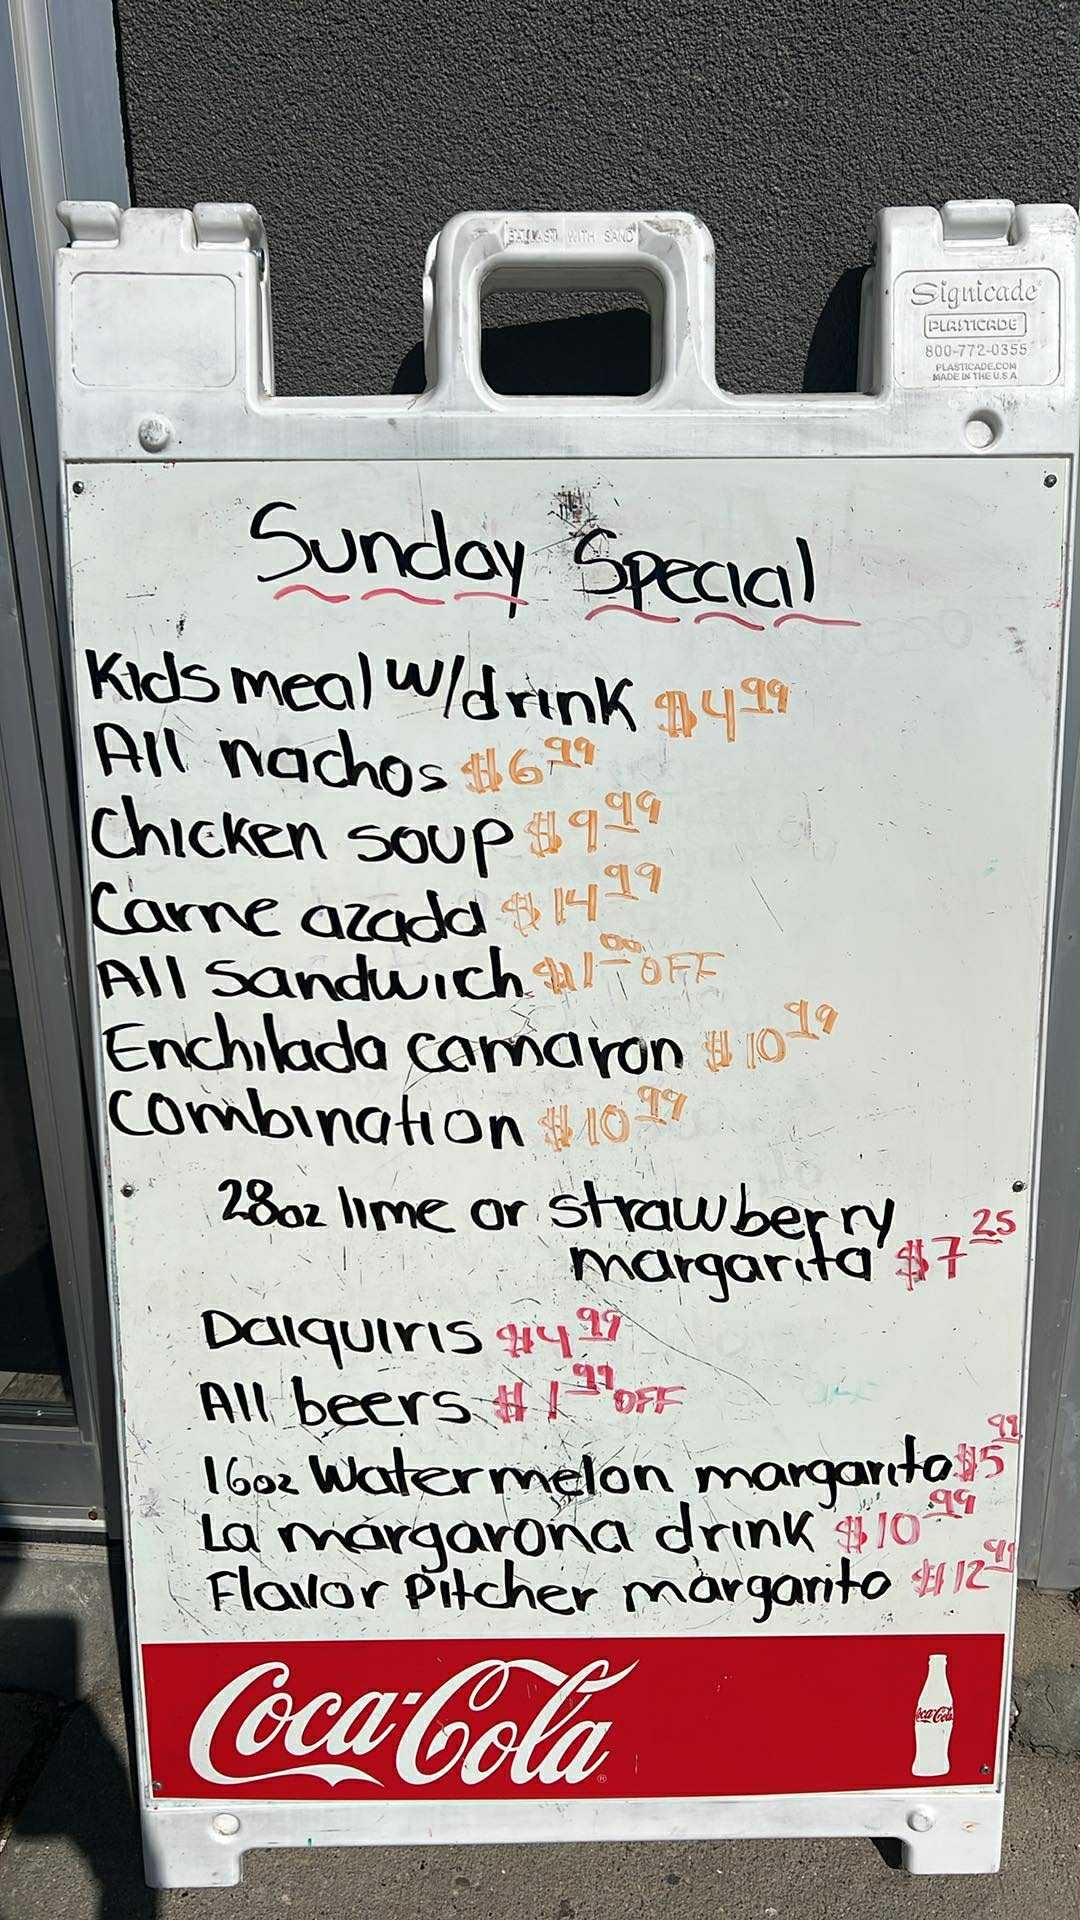 BALLAST WITH SAND
Signicade®
PLASTICADE
800-772-0355
PLASTICADE.COM
MADE IN THE U.S.A
Sunday Special
Kids meal w/drink $4.99
All nachos $6.99
Chicken soup $9.99
Carne azada $14.99
All sandwich $1.00 OFF
Enchilada camaron $10.99
Combination $10.99
28oz lime or strawberry
margarita $7.25
Daiquiris $4.99
All beers $1.99 OFF
16oz Watermelon margarita $5.99
La margarona drink $10.99
Flavor Pitcher margarita $12.99
Coca-Cola®
Coca-Cola